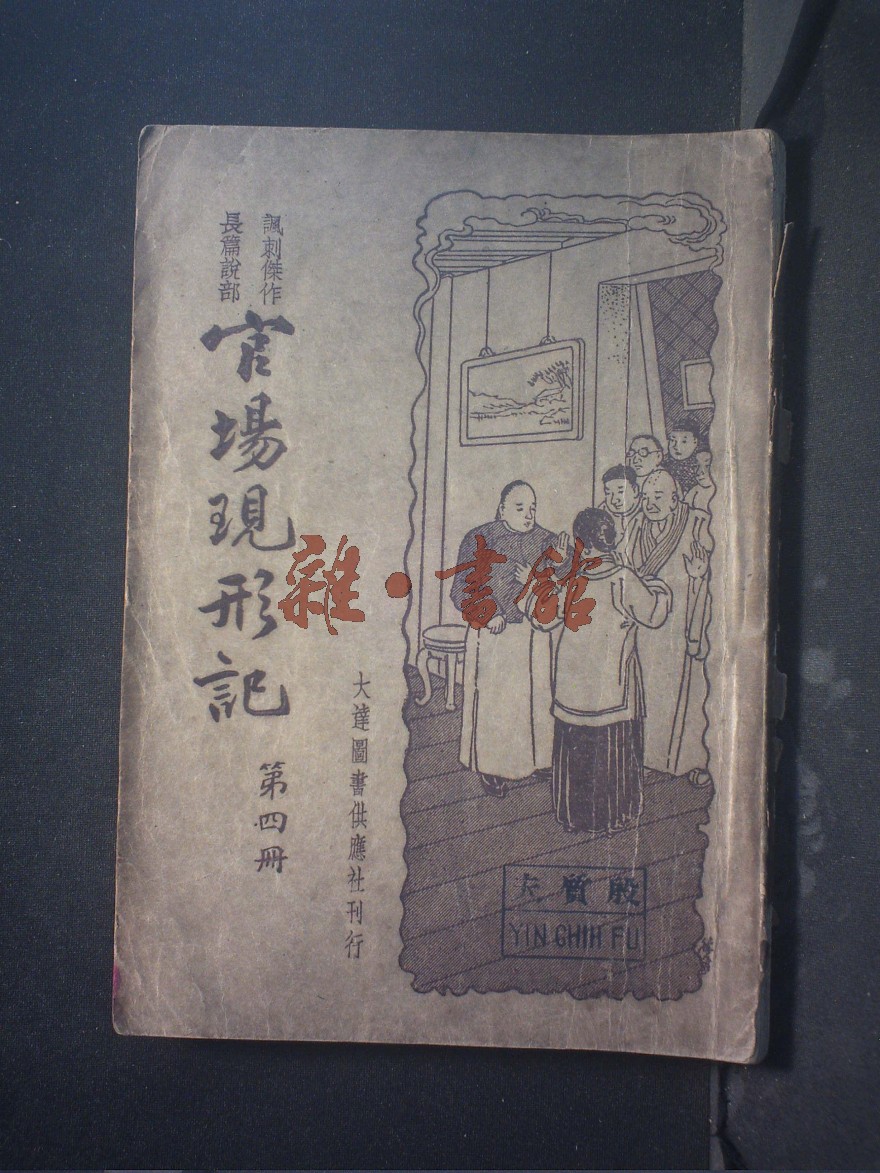 諷刺傑作
長篇說部
官場現形記
第四冊
大達圖書供應社刊行
雜·書館
殷質夫
YIN CHIH FU